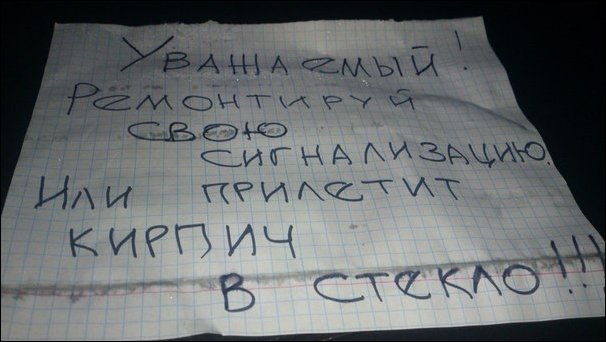 Уважаемый!
Ремонтируй
свою
сигнализацию.
Или прилетит
кирпич
в стекло!!!